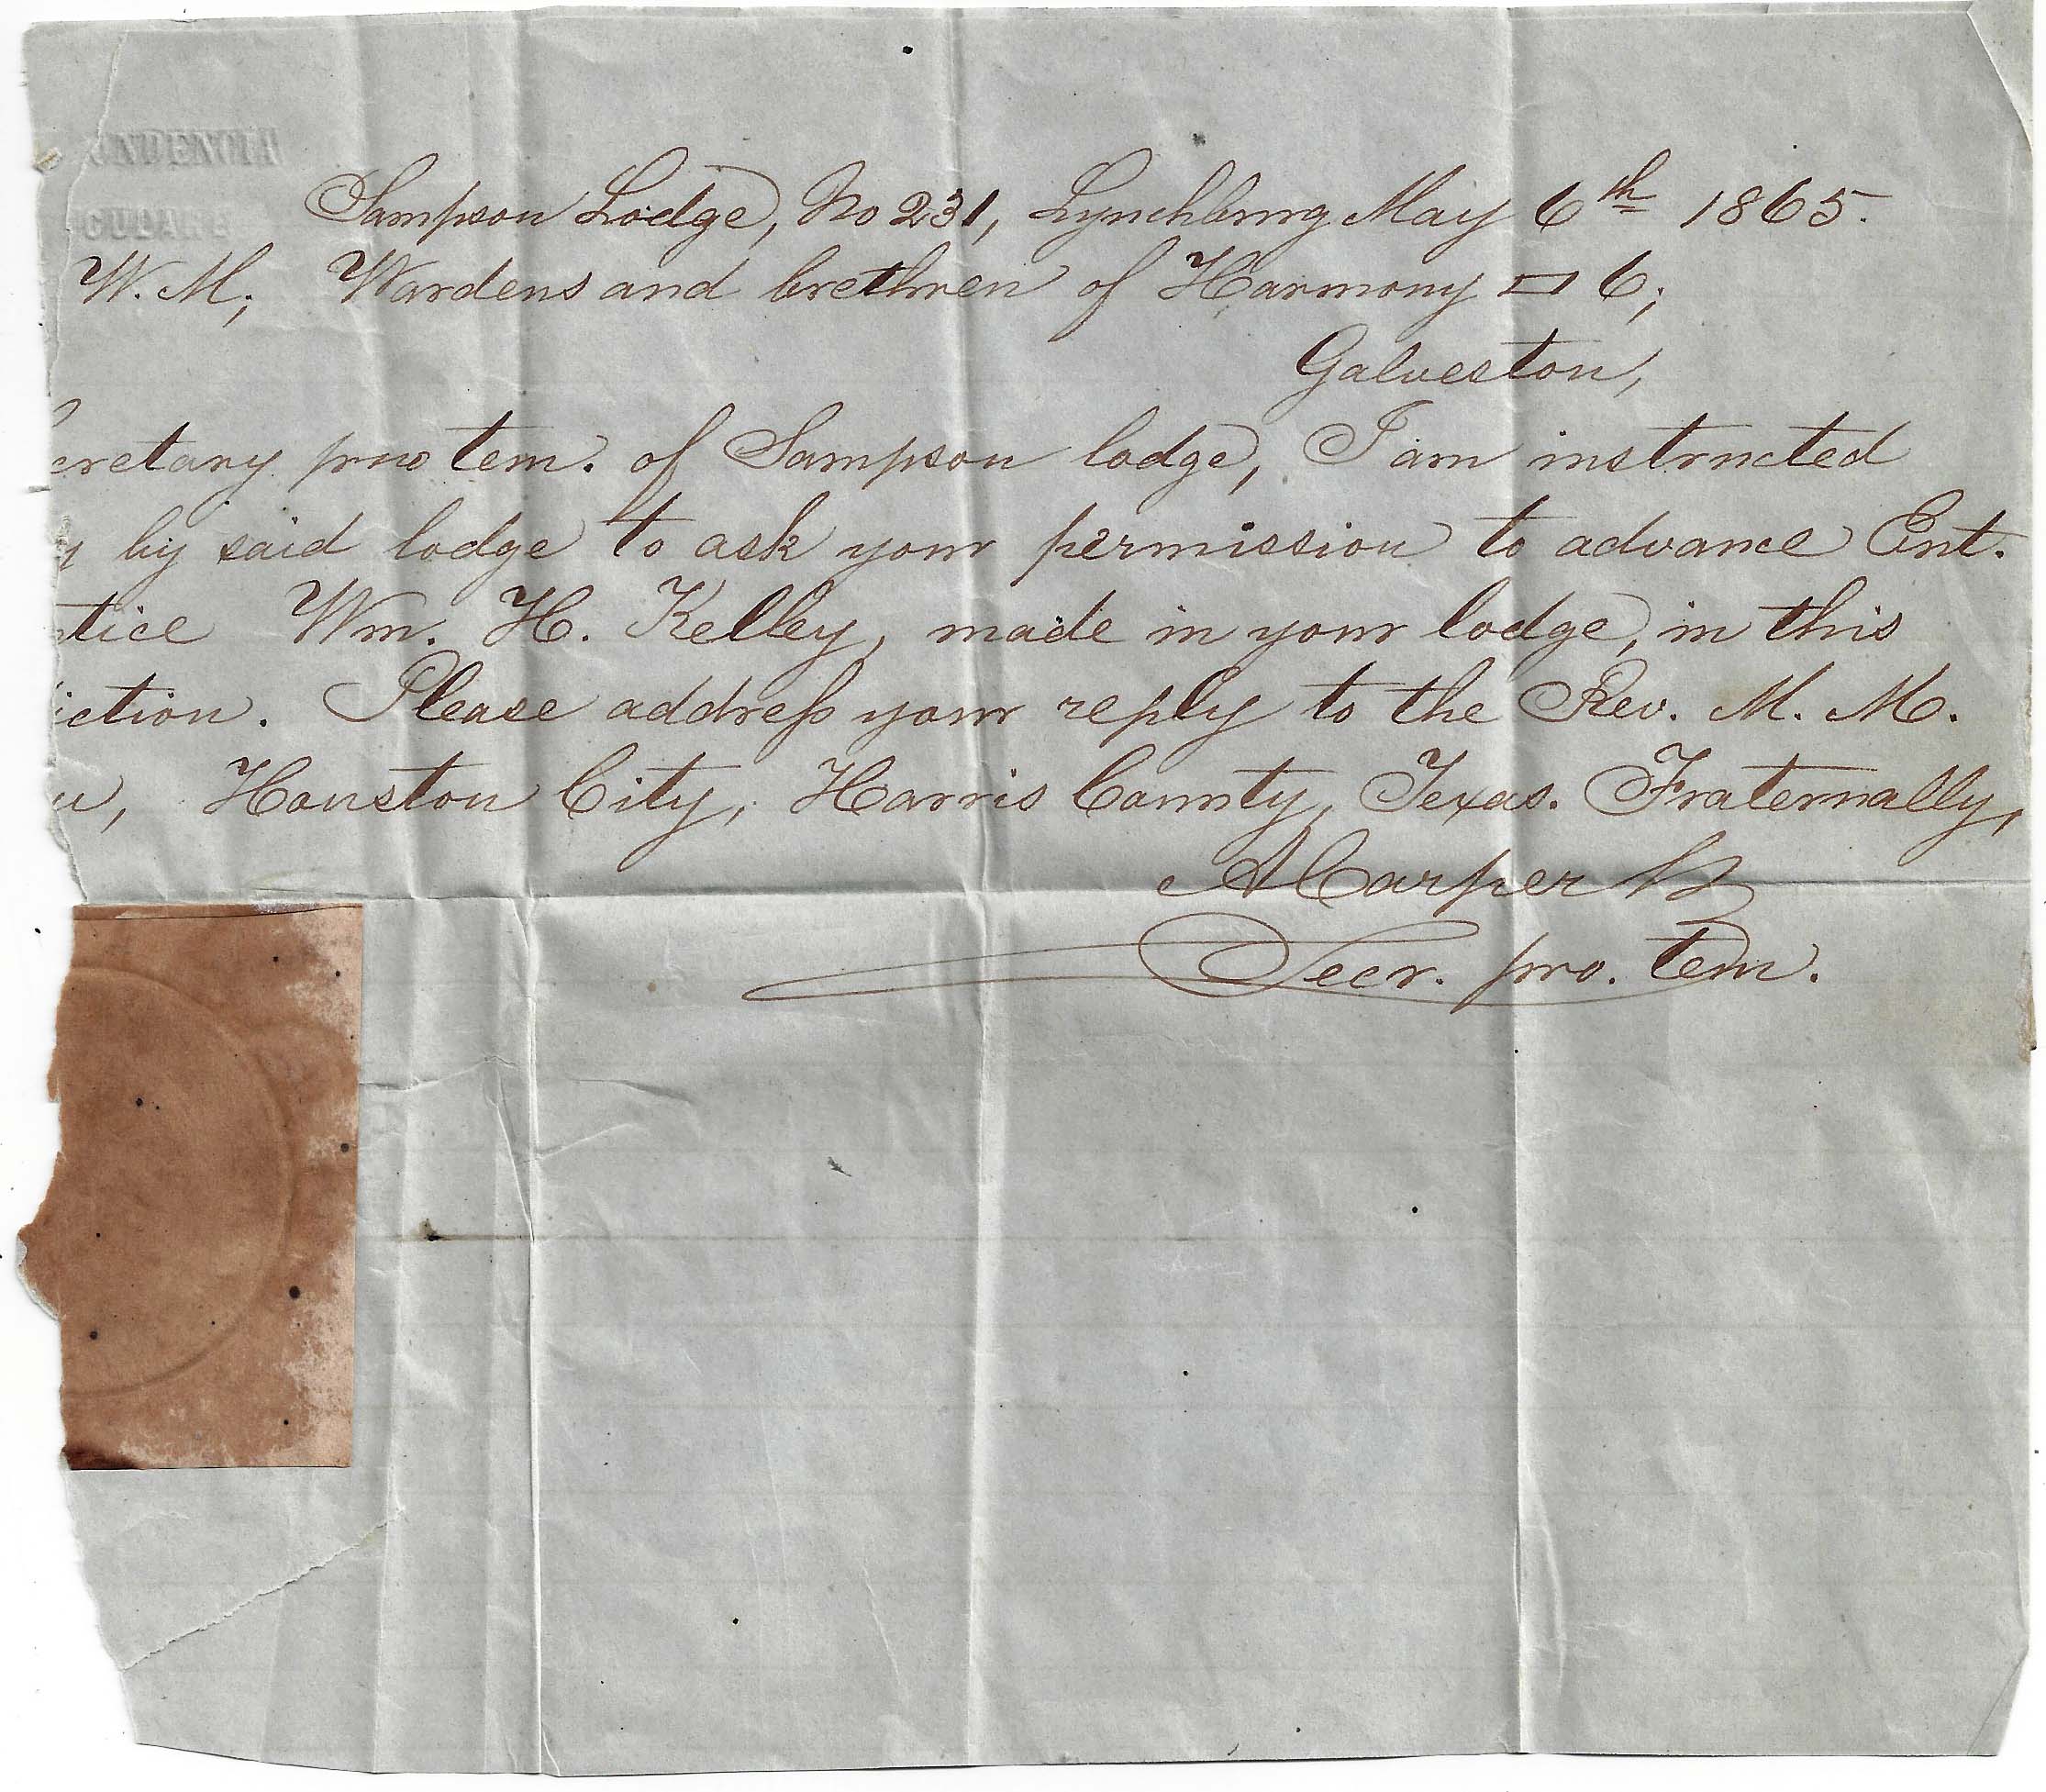 Sampson Lodge, No 231, Lynchburg May 6th 1865.
W. M., Wardens and brethren of Harmony ▭ 6;
Galveston,
ecretary pro tem. of Sampson lodge, I am instructed
y by said lodge to ask your permission to advance Ent.
ntice Wm. H. Kelley, made in your lodge, in this
iction. Please address your reply to the Rev. M. M.
u, Houston City, Harris County, Texas. Fraternally,
A Carper
Secr. pro. tem.